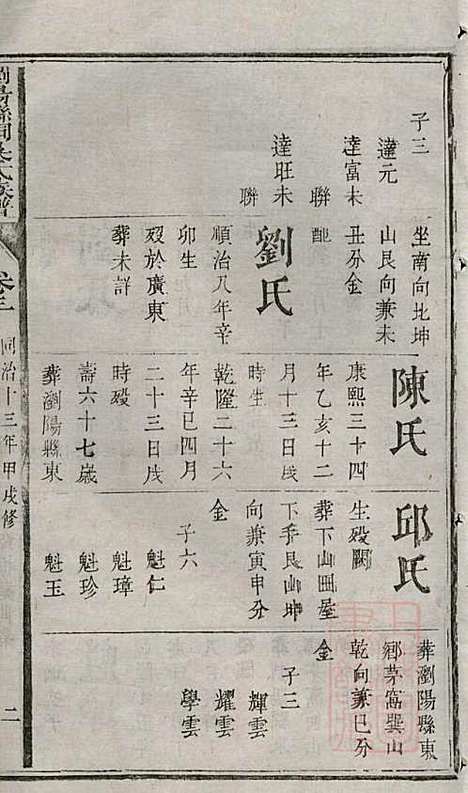 子三
達元
達富未
聯
達旺未
聯
坐南向北坤
山艮向兼未
丑分金
配
劉氏
順治八年辛
卯生
歿於廣東
葬未詳
陳氏
康熙三十四
年乙亥十二
月十三日戌
時生
乾隆二十六
年辛巳四月
二十三日戌
時殁
壽六十七歲
葬瀏陽縣東
邱氏
生殁闕
葬下山田屋
下手艮山坤
向兼寅申分
金
子六
魁仁
魁璋
魁珍
魁玉
葬瀏陽縣東
鄉茅富巽山
乾向兼巳分
金
子三
輝雲
耀雲
學雲
卷三
同治十三年甲戌修
二